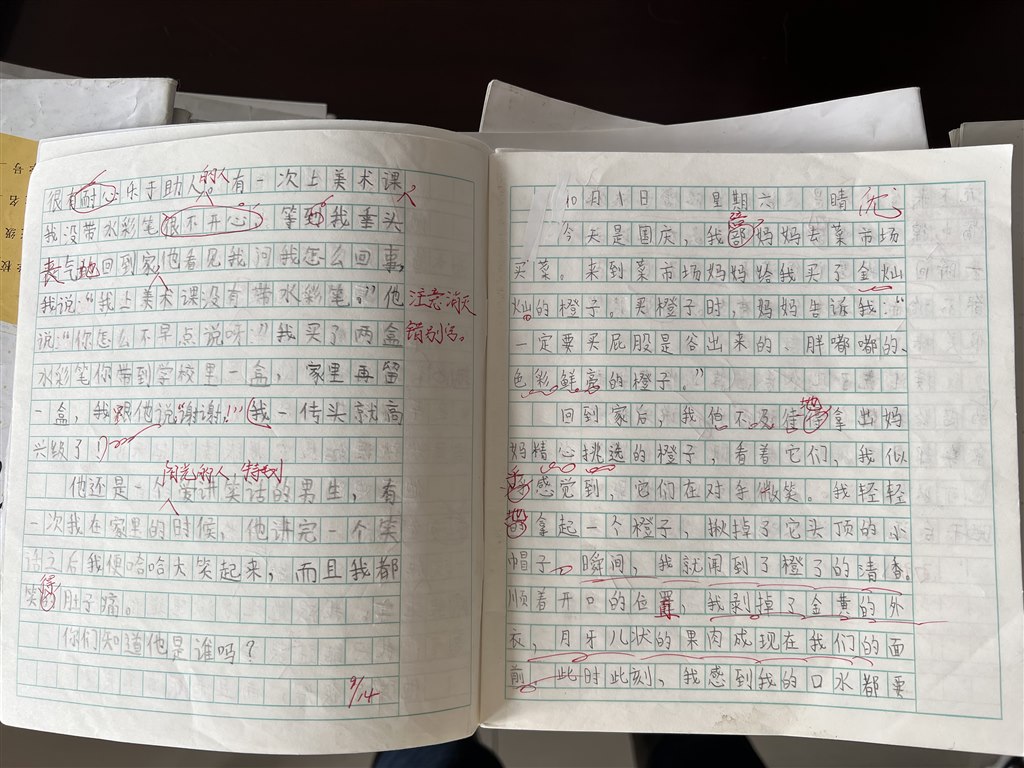 很有耐心乐于助人的人有一次上美术课
我没带水彩笔很不开心，等到我垂头
丧气地回到家他看见我问我怎么回事，
我说："我上美术课没有带水彩笔。"他
说："你怎么不早点说呀！"我买了两盒
水彩笔你带到学校里一盒，家里再留
一盒，我跟他说"谢谢！"我一传头就高
兴级了！
注意消灭
错别字。
阳光的人，特别
他还是一个讲笑话的男生，有
一次我在家里的时候，他讲完一个笑
话之后我便哈哈大笑起来，而且我都
笑得肚子痛。
你们知道他是谁吗？
9/14
10月1日 星期六 晴 优
今天是国庆，我陪妈妈去菜市场
买菜。来到菜市场妈妈给我买了金灿
灿的橙子。买橙子时，妈妈告诉我："
一定要买屁股是谷出来的、胖嘟嘟的、
色彩鲜亮的橙子。"
回到家后，我他不及待地拿出妈
妈精心挑选的橙子，看着它们，我似
乎感觉到，它们在对手微笑。我轻轻
地拿起一个橙子，揪掉了它头顶的小
帽子。瞬间，我就闻到了橙子的清香。
顺着开口的位置，我剥掉了金黄的外
衣，月牙儿状的果肉成现在我们的面
前，此时此刻，我感到我的口水都要